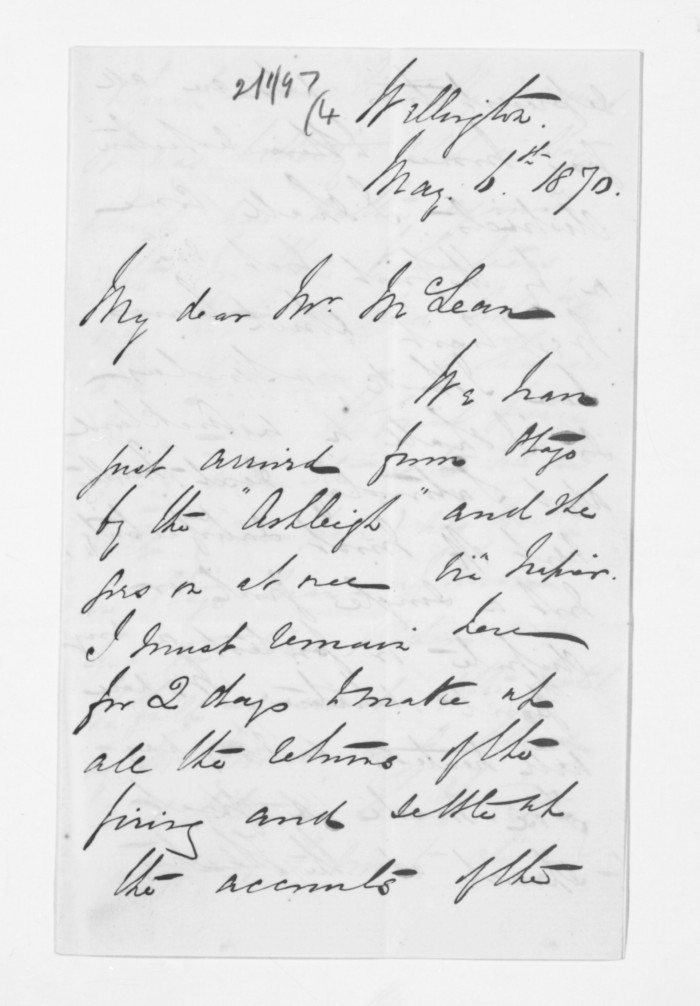 Wellington.
May. 6.th 1870.
My dear Mr. McLean
We have
just arrived from Otago
by the "Ashleigh" and she
goes on at once via Napier.
I must remain here
for 2 days to make up
all the returns of the
firing and settle up
the accounts of the